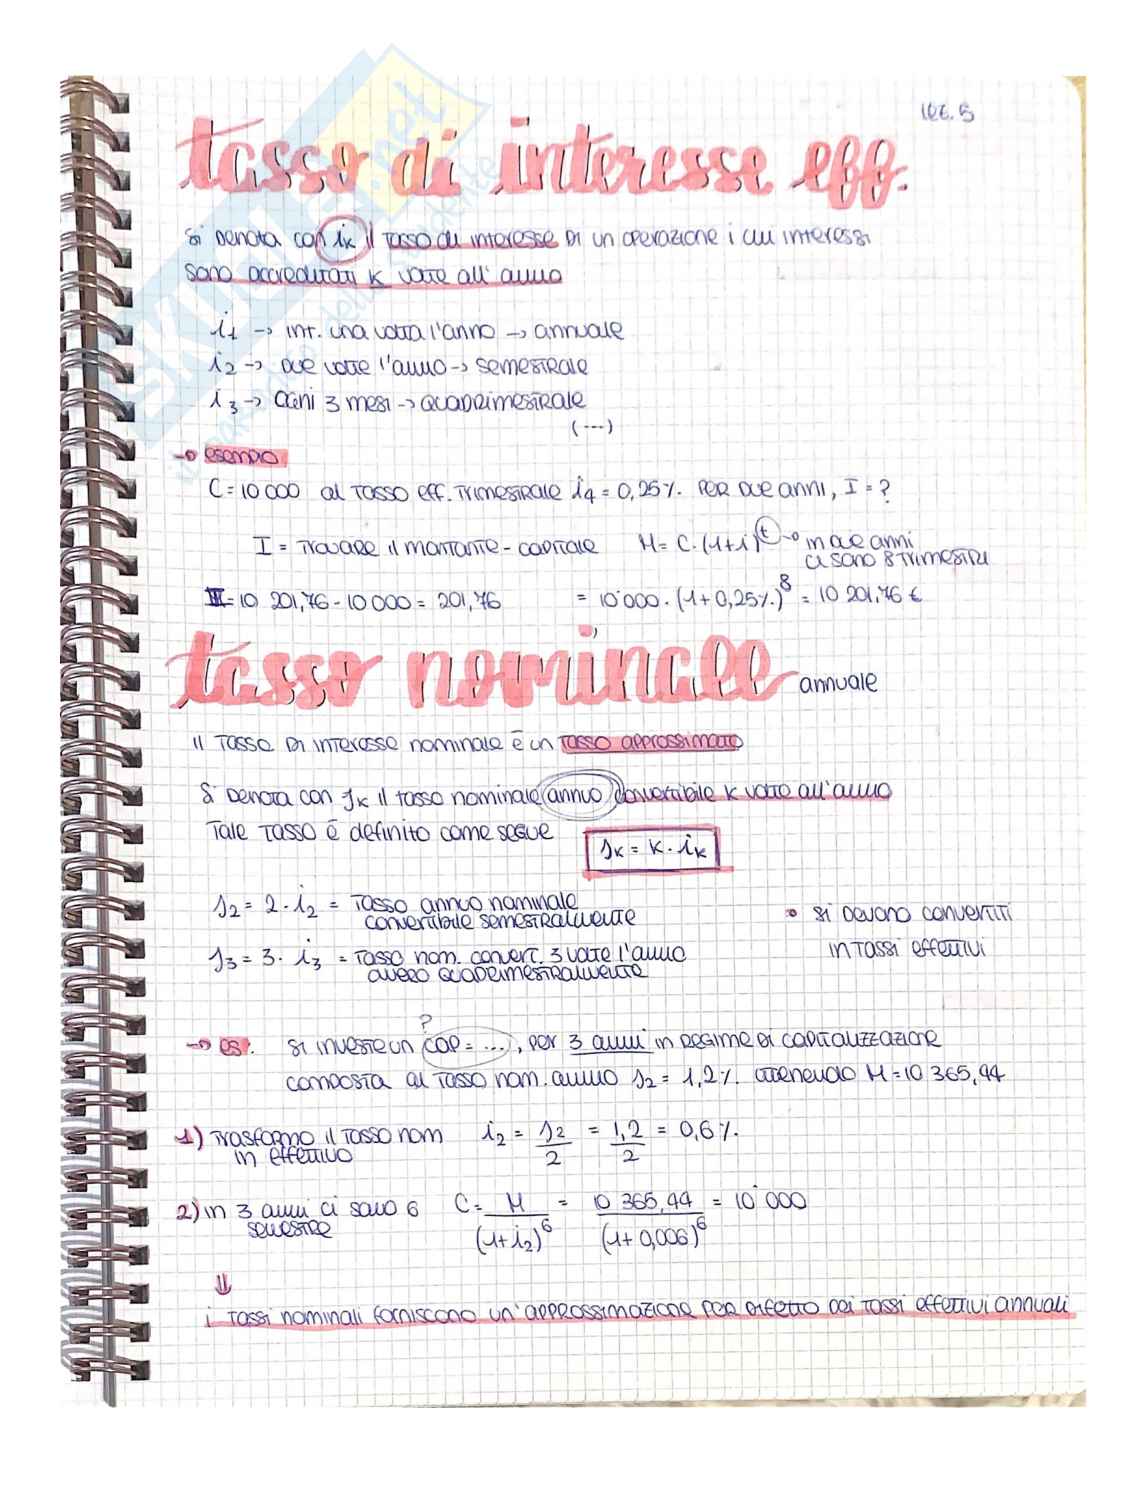 lez. 5
tasso di interesse eff.
Si denota con ik il tasso di interesse di un operazione i cui interessi
sono accreditati k volte all'anno
i1 → int. una volta l'anno → annuale
i2 → due volte l'anno → semestrale
i3 → ogni 3 mesi → quadrimestrale
(...)
→ esempio
C = 10 000 al tasso eff. trimestrale i4 = 0,25%. per due anni, I = ?
I = trovare il montante - capitale M = C · (1+i)^t → in due anni
ci sono 8 trimestri
I = 10 201,76 - 10 000 = 201,76 = 10'000 · (1+0,25%)^8 = 10 201,76 €
tasso nominale annuale
Il tasso di interesse nominale è un tasso approssimato
Si denota con Jk il tasso nominale annuo convertibile k volte all'anno
Tale tasso è definito come segue Jk = k · ik
J2 = 2 · i2 = tasso annuo nominale
convertibile semestralmente
• si devono convertiti
in tassi effettivi
J3 = 3 · i3 = tasso nom. convert. 3 volte l'anno
ovvero quadrimestralmente
?
→ es. si investe un cap = ..., per 3 anni in regime di capitalizzazione
composta al tasso nom. annuo J2 = 1,2%. ottenendo M = 10 365,44
1) Trasformo il tasso nom i2 = J2/2 = 1,2/2 = 0,6%.
in effettivo
2) in 3 anni ci sono 6 C = M/(1+i2)^6 = 10 365,44/(1+0,006)^6 = 10'000
semestre
⇓
i tassi nominali forniscono un'approssimazione per difetto dei tassi effettivi annuali